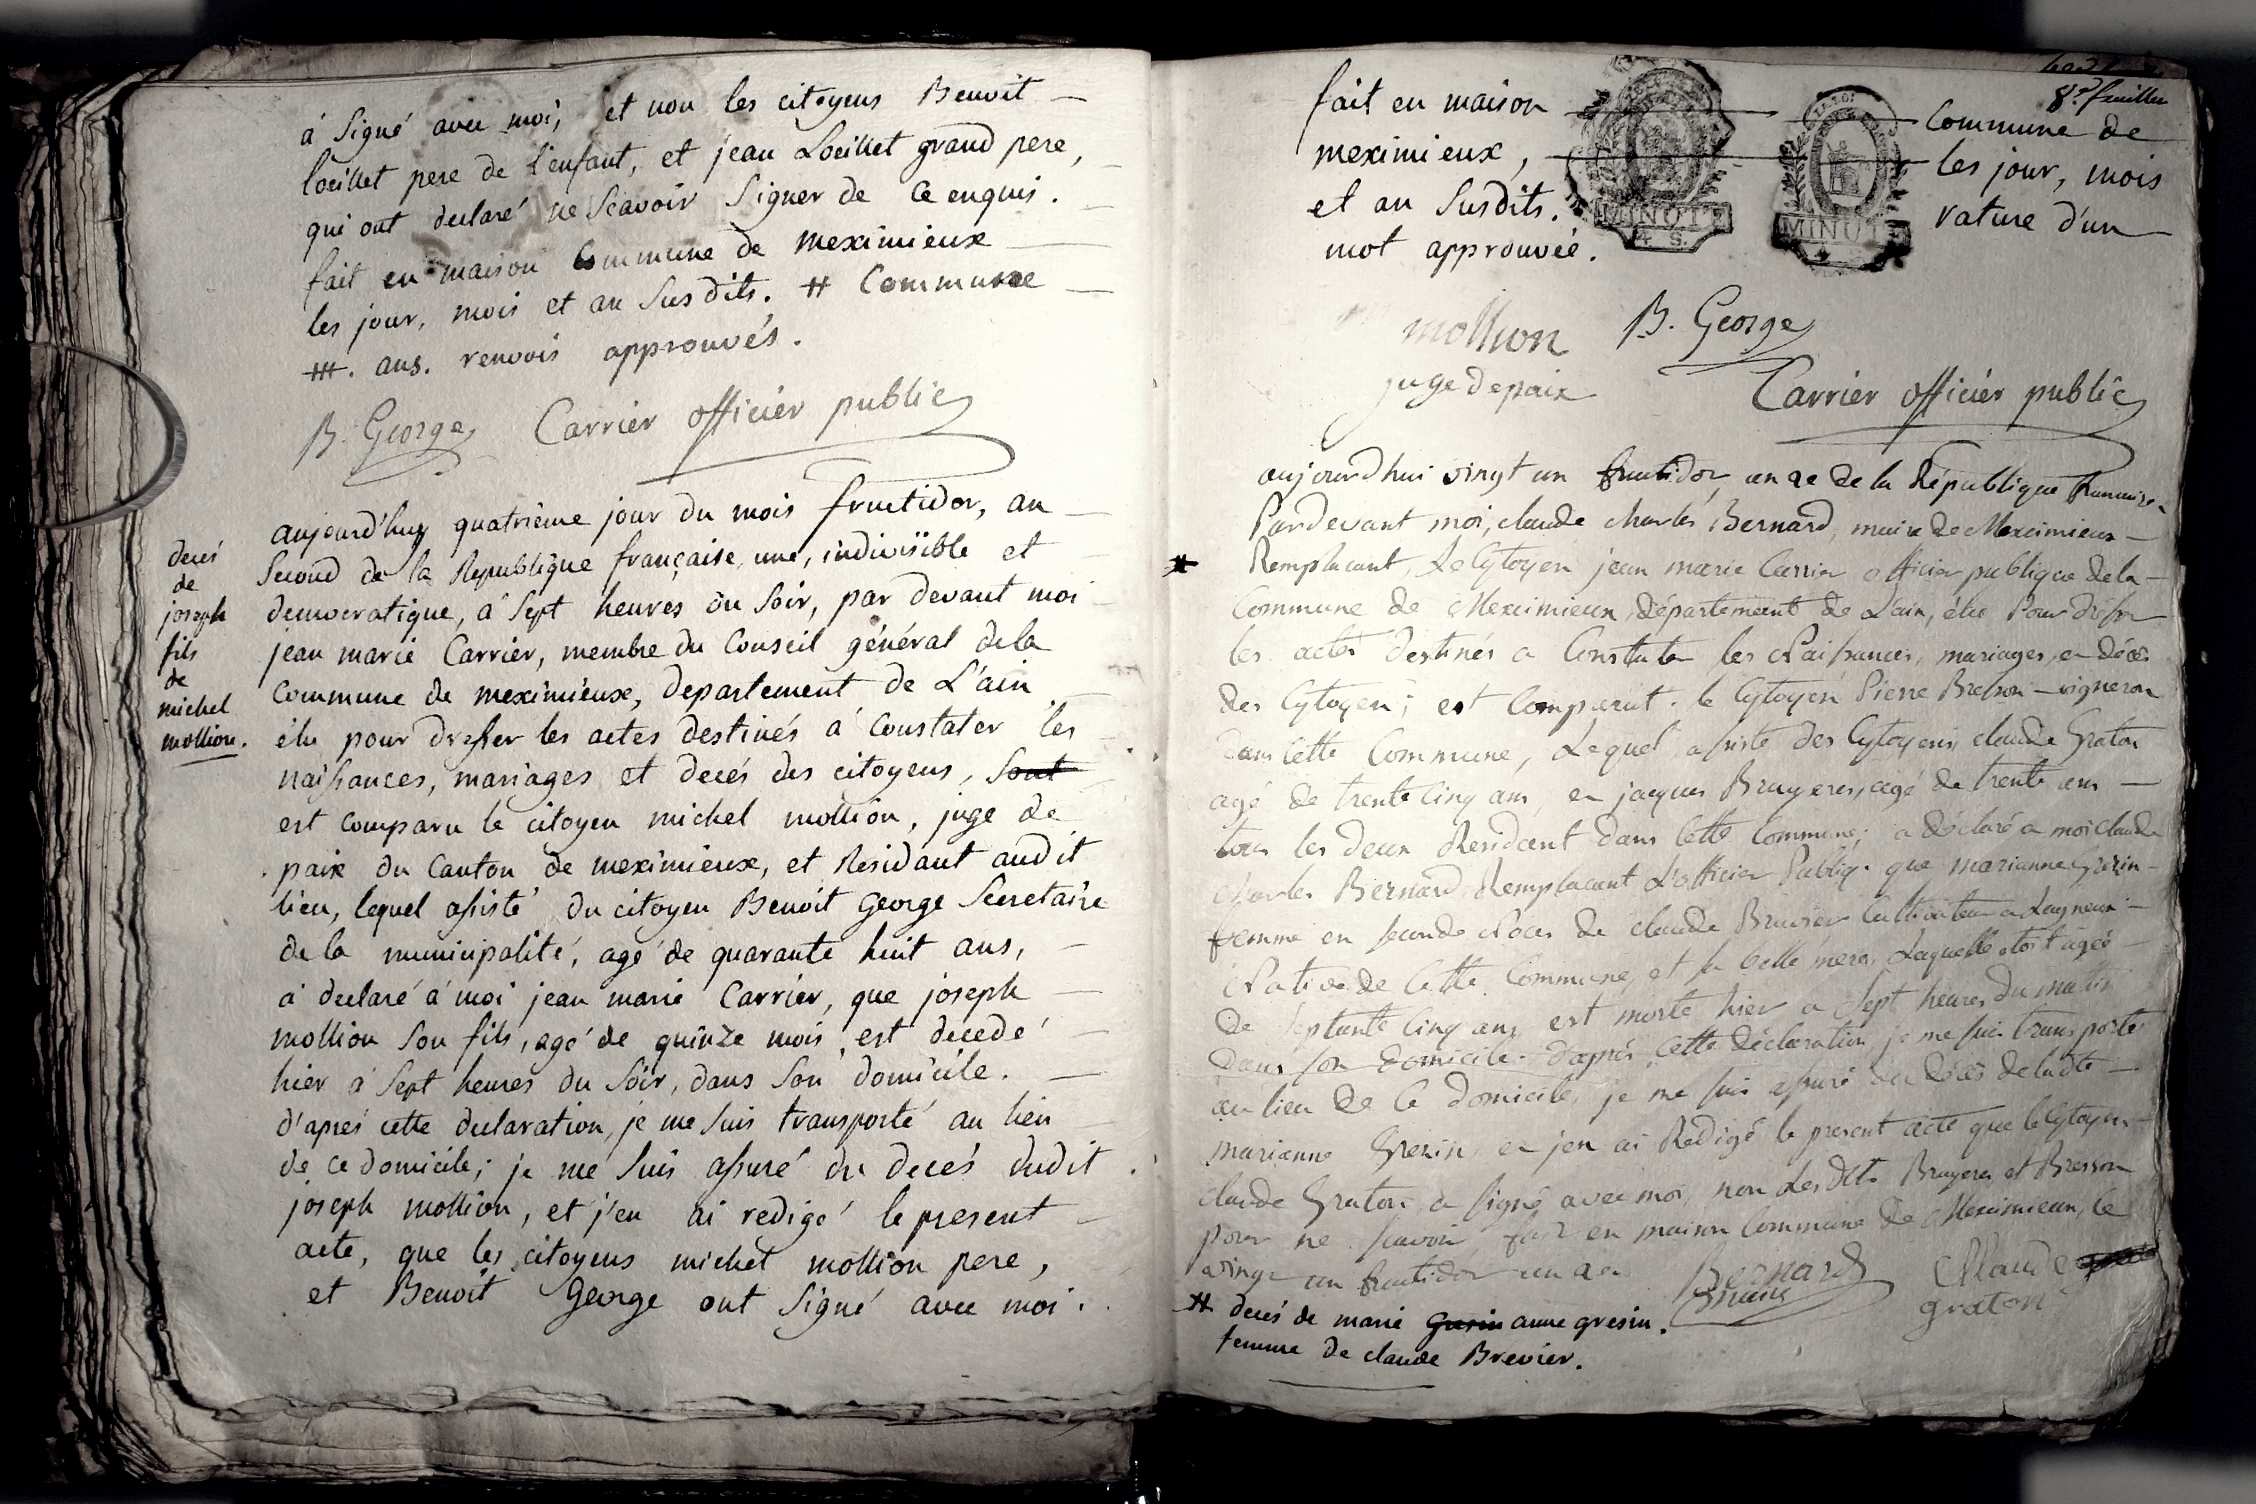 à Signé avec moi, et non les citoyens Benoit
loeillet pere de l'enfant, et jean Loeillet grand pere,
qui ont declaré ne Scavoir Signer de Ce enquis.
fait en maison Commune de meximieux
les jour, mois et an Susdits. # Commune
##. ans. renvois approuvés.
B. George Carrier officier public
decés
de
joseph
fils
de
michel
mollion.
aujourd'huy quatrième jour du mois fructidor, an
Second de la Republique française, une, indivisible et
democratique, à Sept heures du Soir, par devant moi
jean marie Carrier, membre du Conseil général dela
Commune de meximieux, departement de L'ain
élu pour dresser les actes destinés à Constater les
naissances, mariages et decés des citoyens, Sont
est comparu le citoyen michel mollion, juge de
paix du Canton de meximieux, et Residant audit
lieu, lequel assisté du citoyen Benoit George Secretaire
de la municipalité, agé de quarante huit ans,
à declaré à moi jean marie Carrier, que joseph
mollion Son fils, agé de quinze mois, est decedé
hier à Sept heures du Soir, dans Son domicile.
d'aprés cette declaration, je me Suis transporté au lieu
de ce domicile; je me Suis assuré du decés dudit
joseph mollion, et j'en ai redigé le present
acte, que les citoyens michel mollion pere,
et Benoit George ont Signé avec moi.
8.e feuillet
fait en maison Commune de
meximieux, les jour, mois
et an Susdits. rature d'un
mot approuvée.
MINUTE
4 S.
MINUTE
mollion B. George
juge de paix
Carrier officier public
aujourdhui vingt un fructidor an 2e de la République francaise
Pardevant moi, claude charles Bernard, maire de Meximieux
# Remplacant, Le Cytoyen jean marie Carrier officier publique dela
Commune de Meximieux, département de Lain, élu Pour dresser
les actes destinés a Constater les Naissances, mariages, et décès
des Cytoyens; est Comparut. le Cytoyen Pierre Bresson vigneron
dans Cette Commune, Lequel assisté des Cytoyens claude Graton
agé de trente cinq ans et jacques Bruyeres, agé de trente ans
tous les deux Residant dans Cette Commune; a déclaré a moi Claude
charles Bernard Remplacant L'officier Publiq. que marianne Grezin
femme en seconde Noces de claude Bruvier Cultivateur a Lagneux
Native de Cette Commune, et sa belle mere, Laquelle etoit agée
de Septante Cinq ans est morte hier a Sept heures du matin
dans son domicile. d'aprés Cette déclaration je me suis transporté
au lieu de Ce domicile, je me suis assuré du décès deladte
marianne Grezin, et jen ai Redigé le present acte que le Cytoyen
claude Graton a signé avec moi, non Lesdits Bruyeres et Bresson
pour ne scavoir, fait en maison Commune de Meximieux, le
vingt un fructidor an 2e
Bernard Claude
maire graton
# decés de marie Gresin anne gresin.
femme de claude Brevier.